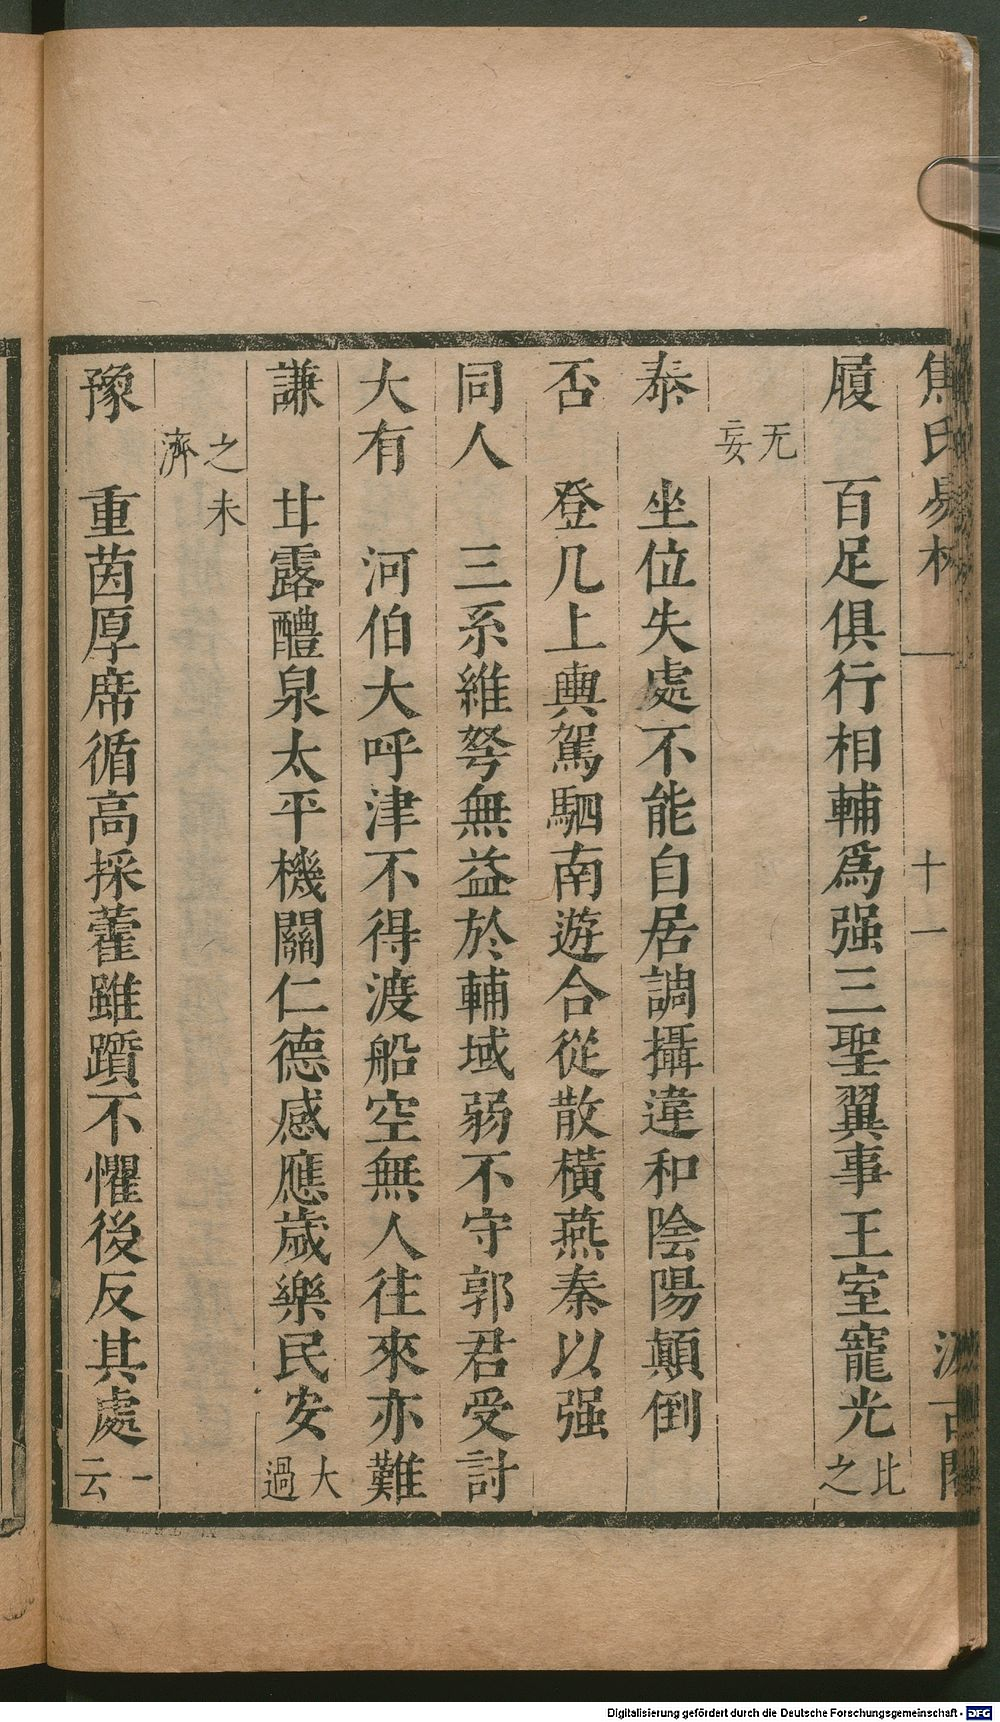 焦氏易林 一 十一 汲古閣
履 百足俱行相輔爲强三聖翼事王室寵光 比之
无妄
泰 坐位失處不能自居調攝違和陰陽顛倒
否 登几上輿駕駟南遊合從散橫燕秦以强
同人 三系維弩無益於輔域弱不守郭君受討
大有 河伯大呼津不得渡船空無人往來亦難
謙 甘露醴泉太平機關仁德感應歲樂民安 大過
之未濟
豫 重茵厚席循高採藿雖躓不懼後反其處 一云
Digitalisierung gefördert durch die Deutsche Forschungsgemeinschaft - DFG